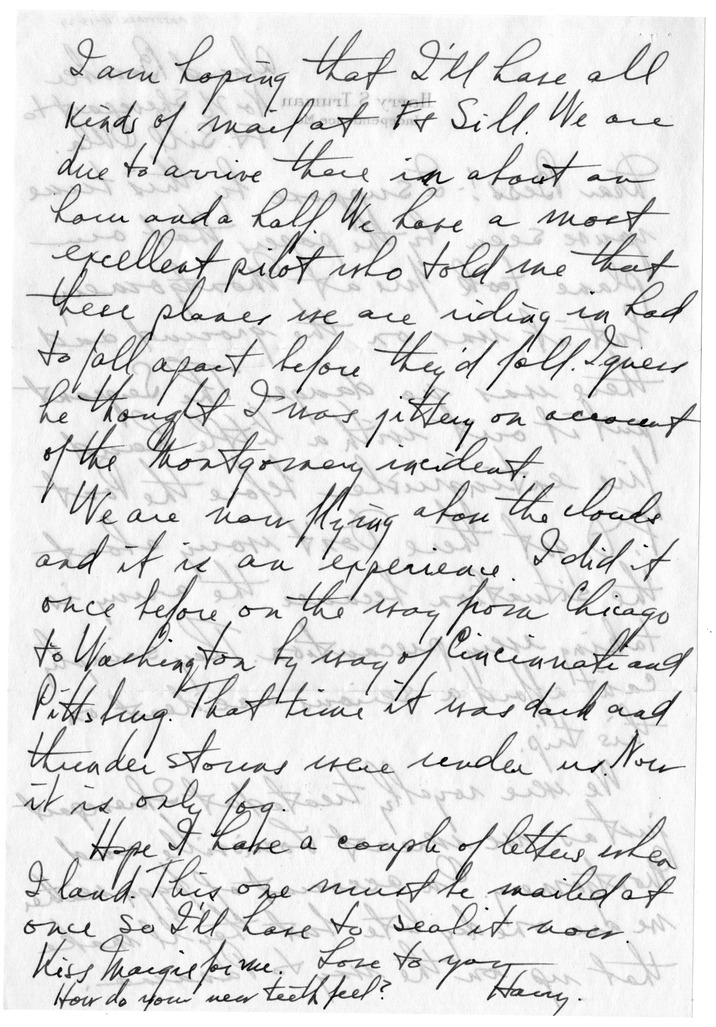 I am hoping that I'll have all
kinds of mail at Ft Sill. We are
due to arrive there in about an
hour and a half. We have a most
excellent pilot who told me that
these planes we are riding in had
to fall apart before they'd fall. I guess
he thought I was jittery on account
of the Montgomery incident.
We are now flying above the clouds
and it is an experience. I did it
once before on the way from Chicago
to Washington by way of Cincinnati and
Pittsburg. That time it was dark and
thunder storms were under us. Now
it is only fog.
Hope I have a couple of letters when
I land. This one must be mailed at
once so I'll have to seal it now.
Kiss Margie for me. Love to you
Harry.
How do your new teeth feel?